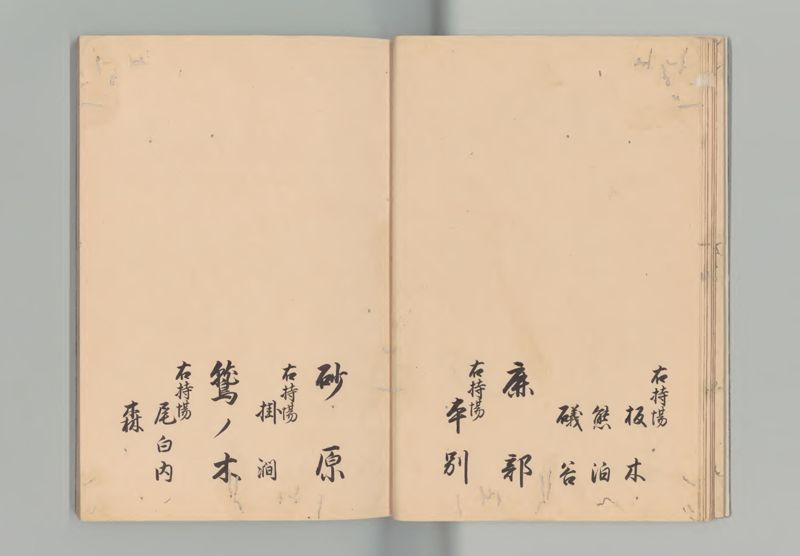 右持場
板木
熊泊
礒谷
鹿部
右持場
本別
砂原
右持場
掛澗
鷲ノ木
右持場
尾白内
森